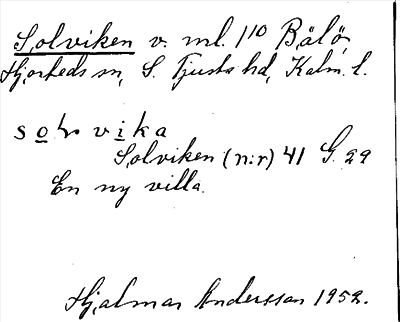 Solviken v. ml. 1¹⁰ Bålö,
Hjorteds sn, S. Tjusts hd, Kalm. l.
solvika
Solviken (n:r) 41 G. 29
En ny villa.
Hjalmar Andersson 1952.